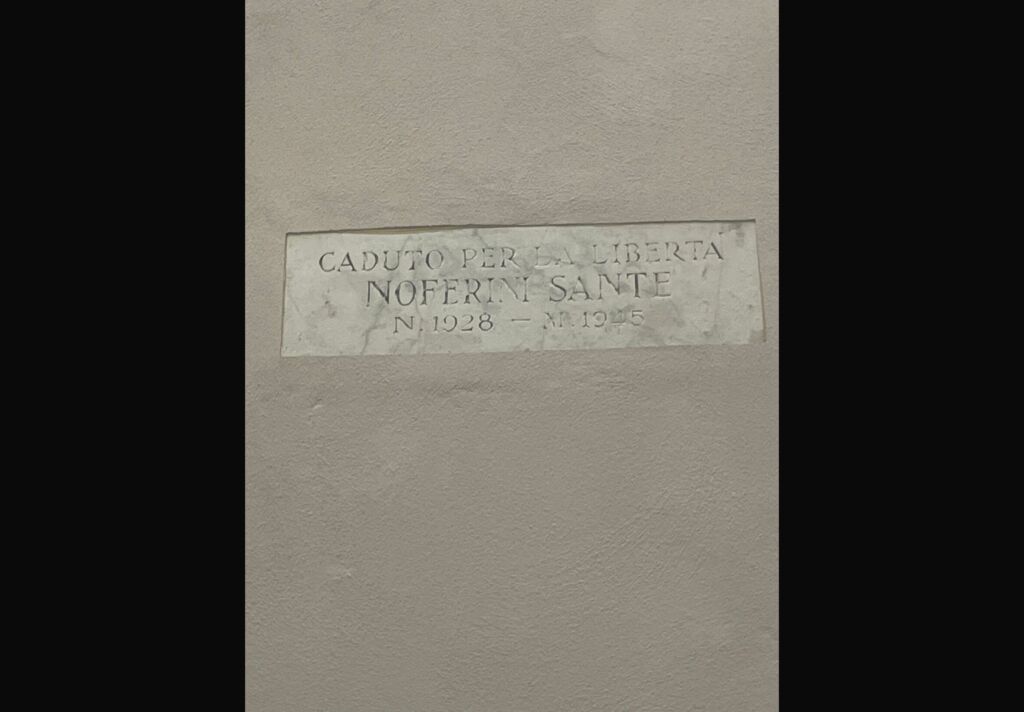 CADUTO PER LA LIBERTÀ
NOFERINI SANTE
N. 1928 — M. 1945